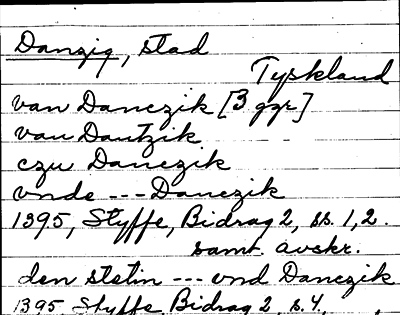 Danzig, stad
Tyskland
van Danczik [3 ggr]
van Dantzik
czu Danczik
vnde --- Danczik
1395, Styffe, Bidrag 2, ss. 1, 2.
samt. avskr.
den stetin --- vnd Danczik
1395, Styffe, Bidrag 2, s. 4,